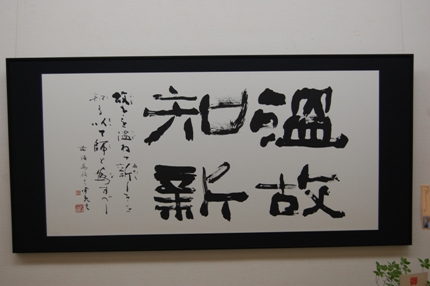 温故
知新
故きを温ねて新しきを
知る以て師と為すべし